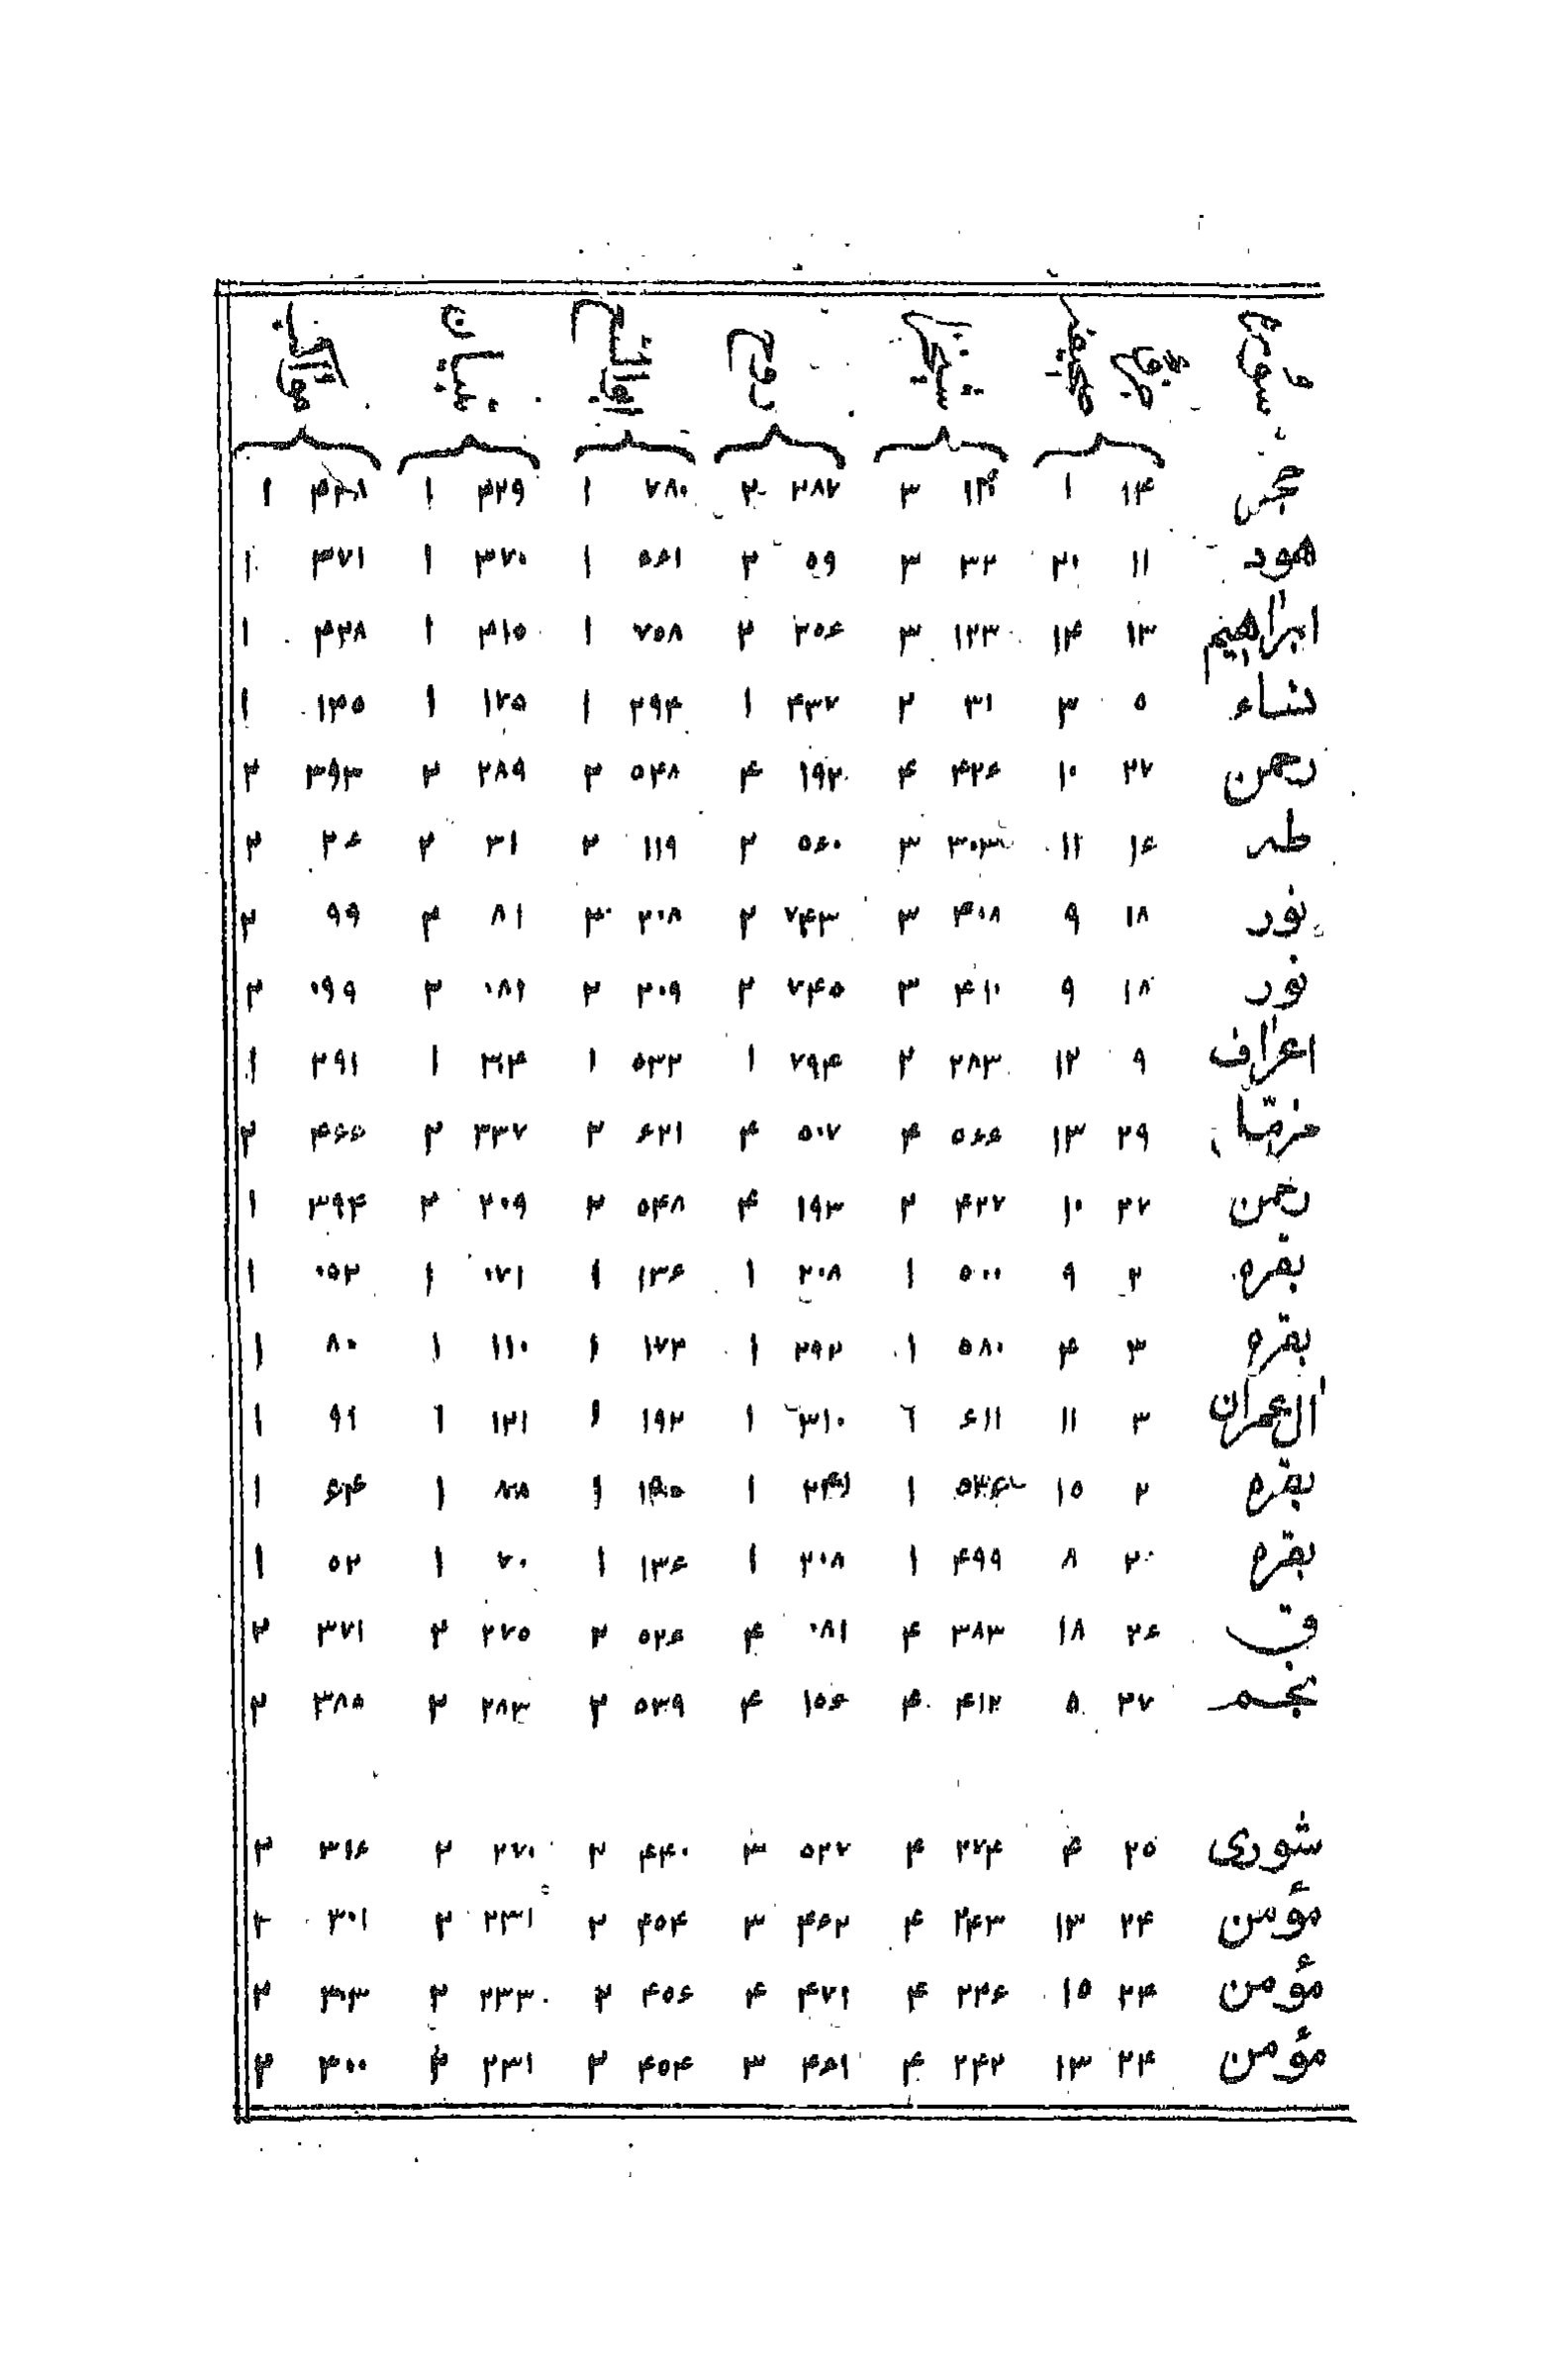 حجر ۱۴ ۱ ۳ ۲۸۷ ۲ ۷۸۰ ۱ ۴۲۹ ۱ ۱
هود ۱۱ ۲۰ ۳۲ ۳ ۵۹ ۲ ۵۶۱ ۱ ۳۷۰ ۱ ۳۷۱ ۱
ابراهیم ۱۳ ۱۴ ۱۲۳ ۳ ۲۵۶ ۲ ۷۵۸ ۱ ۴۱۵ ۱ ۴۲۸ ۱
نساء ۵ ۳ ۳۱ ۲ ۴۳۷ ۱ ۲۹۴ ۱ ۱۷۵ ۱ ۱۳۵ ۱
رحمن ۲۷ ۱۰ ۴۲۶ ۴ ۱۹۲ ۴ ۵۴۸ ۲ ۲۸۹ ۲ ۳۹۳ ۲
طه ۱۶ ۱۱ ۳۰۳ ۳ ۵۶۰ ۲ ۱۱۹ ۲ ۳۱ ۲ ۲۶ ۲
نور ۱۸ ۹ ۴۰۸ ۳ ۷۴۳ ۲ ۲۰۸ ۲ ۸۱ ۲ ۹۹ ۲
نور ۱۸ ۹ ۴۱۰ ۳ ۷۴۵ ۲ ۲۰۹ ۲ ۰۸۱ ۲ ۰۹۹ ۲
اعراف ۹ ۱۲ ۲۸۳ ۲ ۷۹۴ ۱ ۵۳۲ ۱ ۱ ۲۹۱ ۱
۲۹ ۱۳ ۵۶۶ ۴ ۵۰۷ ۴ ۶۲۱ ۲ ۳۳۷ ۲ ۴۶۶ ۲
رحمن ۲۷ ۱۰ ۴۲۷ ۲ ۱۹۳ ۴ ۵۴۸ ۲ ۲۰۹ ۲ ۳۹۴ ۱
بقره ۲ ۹ ۵۰۰ ۱ ۲۰۸ ۱ ۱۳۶ ۱ ۰۷۱ ۱ ۰۵۲ ۱
بقره ۳ ۴ ۵۸۰ ۱ ۲۹۲ ۱ ۱۷۳ ۱ ۱۱۰ ۱ ۸۰ ۱
آل عمران ۳ ۱۱ ۶۱۱ ۱ ۳۱۰ ۱ ۱۹۲ ۱ ۱۲۱ ۱ ۹۱ ۱
بقره ۲ ۱۵ ۵۳۶ ۱ ۲۴۱ ۱ ۱ ۱ ۶۴ ۱
بقره ۲۰ ۸ ۴۹۹ ۱ ۲۰۸ ۱ ۱۳۶ ۱ ۷۰ ۱ ۵۲ ۱
ق ۲۶ ۱۸ ۳۸۳ ۴ ۰۸۱ ۴ ۵۲۶ ۲ ۲۷۵ ۲ ۳۷۱ ۲
نجم ۲۷ ۵ ۴۱۲ ۴ ۱۵۶ ۴ ۵۳۹ ۲ ۲۸۳ ۲ ۳۸۵ ۲
شوری ۲۵ ۴ ۲۷۴ ۴ ۵۲۷ ۳ ۴۴۰ ۲ ۲۷۰ ۲ ۳۱۶ ۲
مؤمن ۲۴ ۱۳ ۲۴۳ ۴ ۴۶۲ ۳ ۴۵۴ ۲ ۲۳۱ ۲ ۳۰۱ ۲
مؤمن ۲۴ ۱۵ ۲۴۶ ۴ ۴۷۱ ۴ ۴۵۶ ۲ ۲۳۳ ۲ ۳۰۳ ۲
مؤمن ۲۴ ۱۳ ۲۴۲ ۴ ۴۶۱ ۳ ۴۵۴ ۲ ۲۳۱ ۲ ۳۰۰ ۲